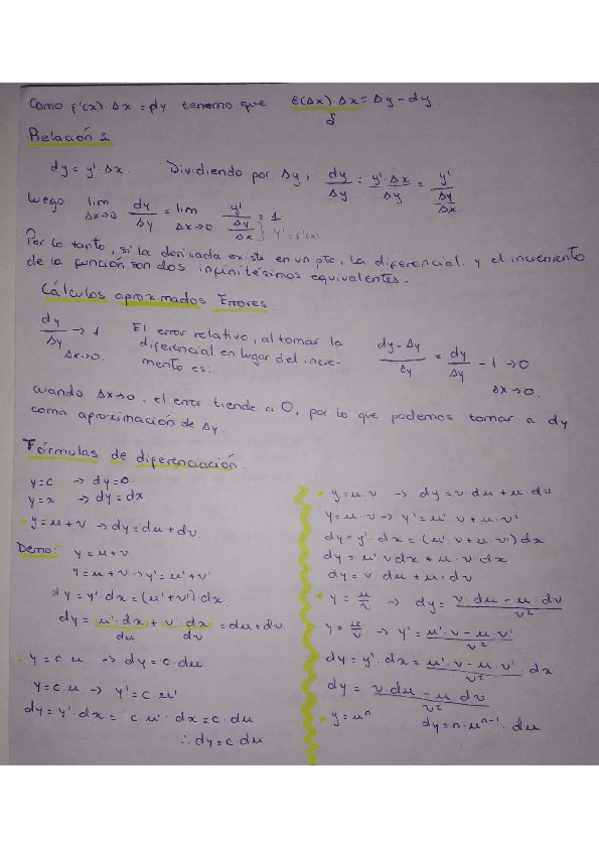 Como f'(x)·Δx = dy tenemo que E(Δx)·Δx = Δy - dy.
Relación 2
dy = y'·Δx. Dividiendo por Δy, dy/Δy = y'·Δx/Δy = y'/(Δy/Δx)
Luego lim Δx→0 dy/Δy = lim Δx→0 y'/(Δy/Δx) = 1
y' = f'(x)
Por lo tanto, si la derivada existe en un pto, la diferencial y el incremento
de la función son dos infinitésimos equivalentes.
Cálculos aproximados Errores
dy/Δy → 1 Δx→0. El error relativo, al tomar la
diferencial en lugar del incre-
mento es: (dy - Δy)/Δy = dy/Δy - 1 → 0
Δx→0.
cuando Δx→0, el error tiende a 0, por lo que podemos tomar a dy
como aproximación de Δy.
Fórmulas de diferenciación.
y = c → dy = 0.
y = x → dy = dx
y = u + v → dy = du + dv.
Demo: y = u + v
y = u + v → y' = u' + v'
dy = y'·dx = (u' + v')dx.
dy = u'·dx + v'·dx = du + dv
du dv
y = c·u → dy = c·du
y = c·u → y' = c·u'
dy = y'·dx = c·u'·dx = c·du
∴ dy = c·du
y = u·v → dy = v·du + u·dv
y = u·v → y' = u'·v + u·v'
dy = y'·dx = (u'·v + u·v')dx
dy = u'vdx + u·v'dx
dy = v du + u·dv
y = u/v → dy = (v·du - u·dv)/v²
y = u/v → y' = (u'·v - u·v')/v²
dy = y'·dx = (u'·v - u·v')/v² · dx
dy = (v·du - u·dv)/v²
y = uⁿ dy = n·uⁿ⁻¹·du